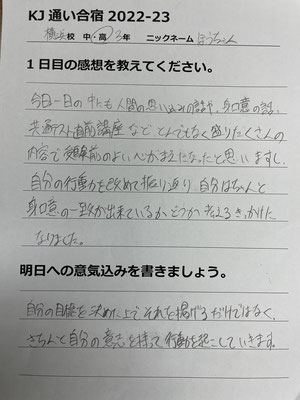 KJ 通い合宿 2022-23
横浜校 中・高 3年 ニックネーム ぼうちゃん
1日目の感想を教えてください。
今日一日の中にも人間の思い込みの話や、身口意の話、
共通テスト直前講座など とんでもなく盛りだくさんの
内容で受験前のよい心がまえになったと思いますし、
自分の行動を改めて振り返り、自分はちゃんと
身口意の一致が出来ているかどうか 考えるきっかけに
なりました。
明日への意気込みを書きましょう。
自分の目標を決めた上で それを掲げるだけではなく、
きちんと自分の意志を持って行動を起こしていきます。